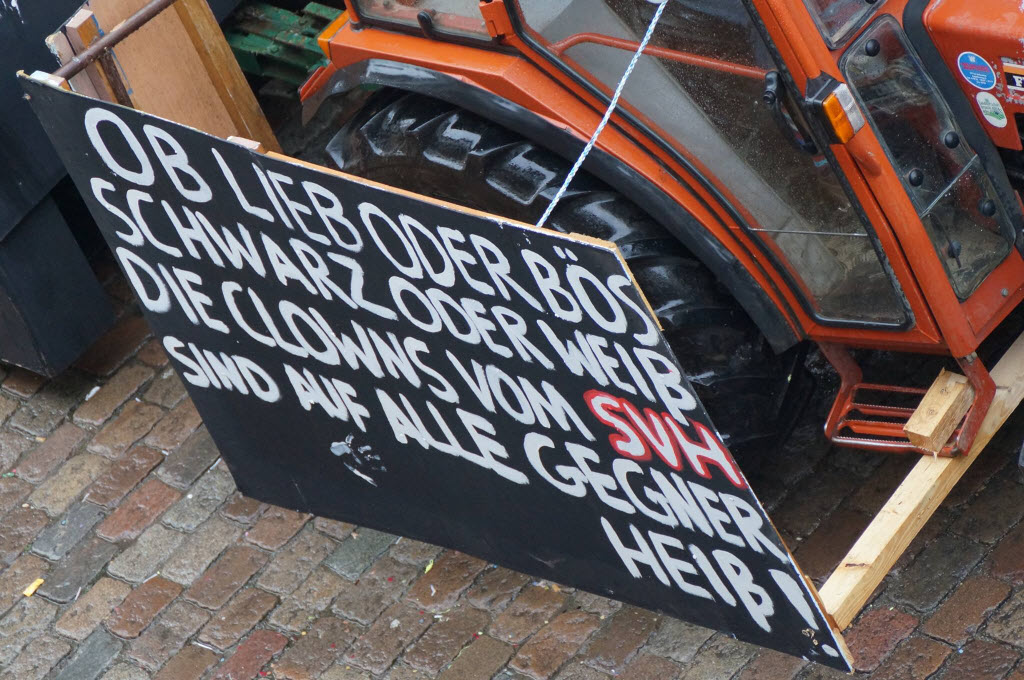 OB LIEB ODER BÖS
SCHWARZ ODER WEIß
DIE CLOWNS VOM SVH
SIND AUF ALLE GEGNER
HEIß!